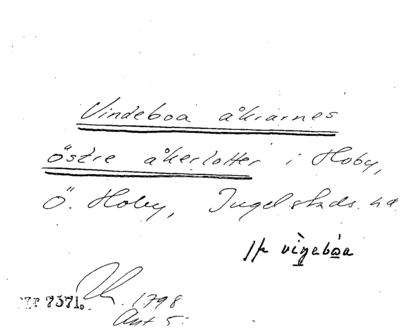 Vindeboa åkrarnes
östre åkerlotter i Hoby,
Ö. Hoby, Ingelstads hd
vịnebǻa
7371. 1798
Akt 5.